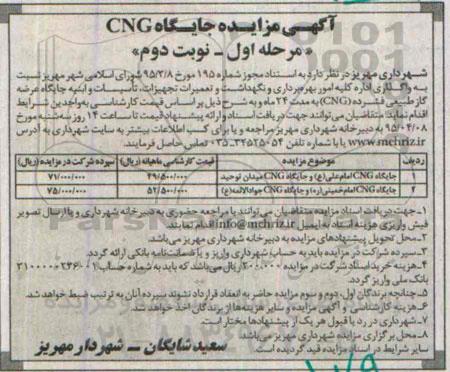 آگهی مزایده جایگاه CNG
«مرحله اول - نوبت دوم»
شهرداری مهریز در نظر دارد به استناد مجوز شماره ۱۹۵ مورخ ۹۵/۳/۸ شورای اسلامی شهر مهریز نسبت
به واگذاری اداره کلیه امور بهره‌برداری و نگهداشت و تعمیرات تجهیزات، تأسیسات و ابنیه جایگاه عرضه
گاز طبیعی فشرده (CNG) به مدت ۲۴ ماه و به شرح ذیل بر اساس قیمت کارشناسی به واجدین شرایط
اقدام نماید متقاضیان می‌توانند جهت دریافت اسناد و ارائه پیشنهاد قیمت تا ساعت ۱۴ روز سه‌شنبه مورخ
۹۵/۰۴/۰۸ به دبیرخانه شهرداری مهریز مراجعه و یا برای کسب اطلاعات بیشتر به سایت شهرداری به آدرس
www.mehriz.ir یا با شماره تلفن ۳۲۵۲۵۰۵۴-۰۳۵ تماس حاصل فرمایند.
ردیف موضوع مزایده قیمت کارشناسی ماهیانه (ریال) سپرده شرکت در مزایده (ریال)
۱ جایگاه CNG امام علی(ع) و جایگاه CNG میدان توحید ۴۹/۵۰۰/۰۰۰ ۷۱/۰۰۰/۰۰۰
۲ جایگاه CNG امام خمینی(ره) و جایگاه CNG جوادالائمه(ع) ۵۲/۵۰۰/۰۰۰ ۷۵/۰۰۰/۰۰۰
۱- جهت دریافت اسناد مزایده متقاضیان می‌توانند با مراجعه حضوری به دبیرخانه شهرداری و یا ارسال تصویر
فیش واریزی هزینه اسناد به ایمیل info@mehriz.ir اقدام نمایند.
۲- محل تحویل پیشنهادهای مزایده به دبیرخانه شهرداری مهریز می‌باشد.
۳- سپرده شرکت در مزایده باید به حساب شهرداری واریز و یا ضمانت‌نامه بانکی ارائه گردد.
۴- هزینه خرید اسناد شرکت در مزایده ۲۰۰/۰۰۰ ریال می‌باشد که باید به شماره حساب
بانک ملی واریز گردد.
۵- چنانچه برندگان اول، دوم و سوم مزایده حاضر به انعقاد قرارداد نشوند سپرده آنان به ترتیب ضبط خواهد شد.
۶- هزینه کارشناسی و آگهی مزایده و سایر هزینه‌ها از برندگان اخذ خواهد شد.
۷- شهرداری در رد یا قبول هر یک از پیشنهادها مختار است.
۸- محل برگزاری مزایده شهرداری مهریز می‌باشد.
سایر شرایط در اسناد مزایده قید گردیده است.
سعید شایگان - شهردار مهریز